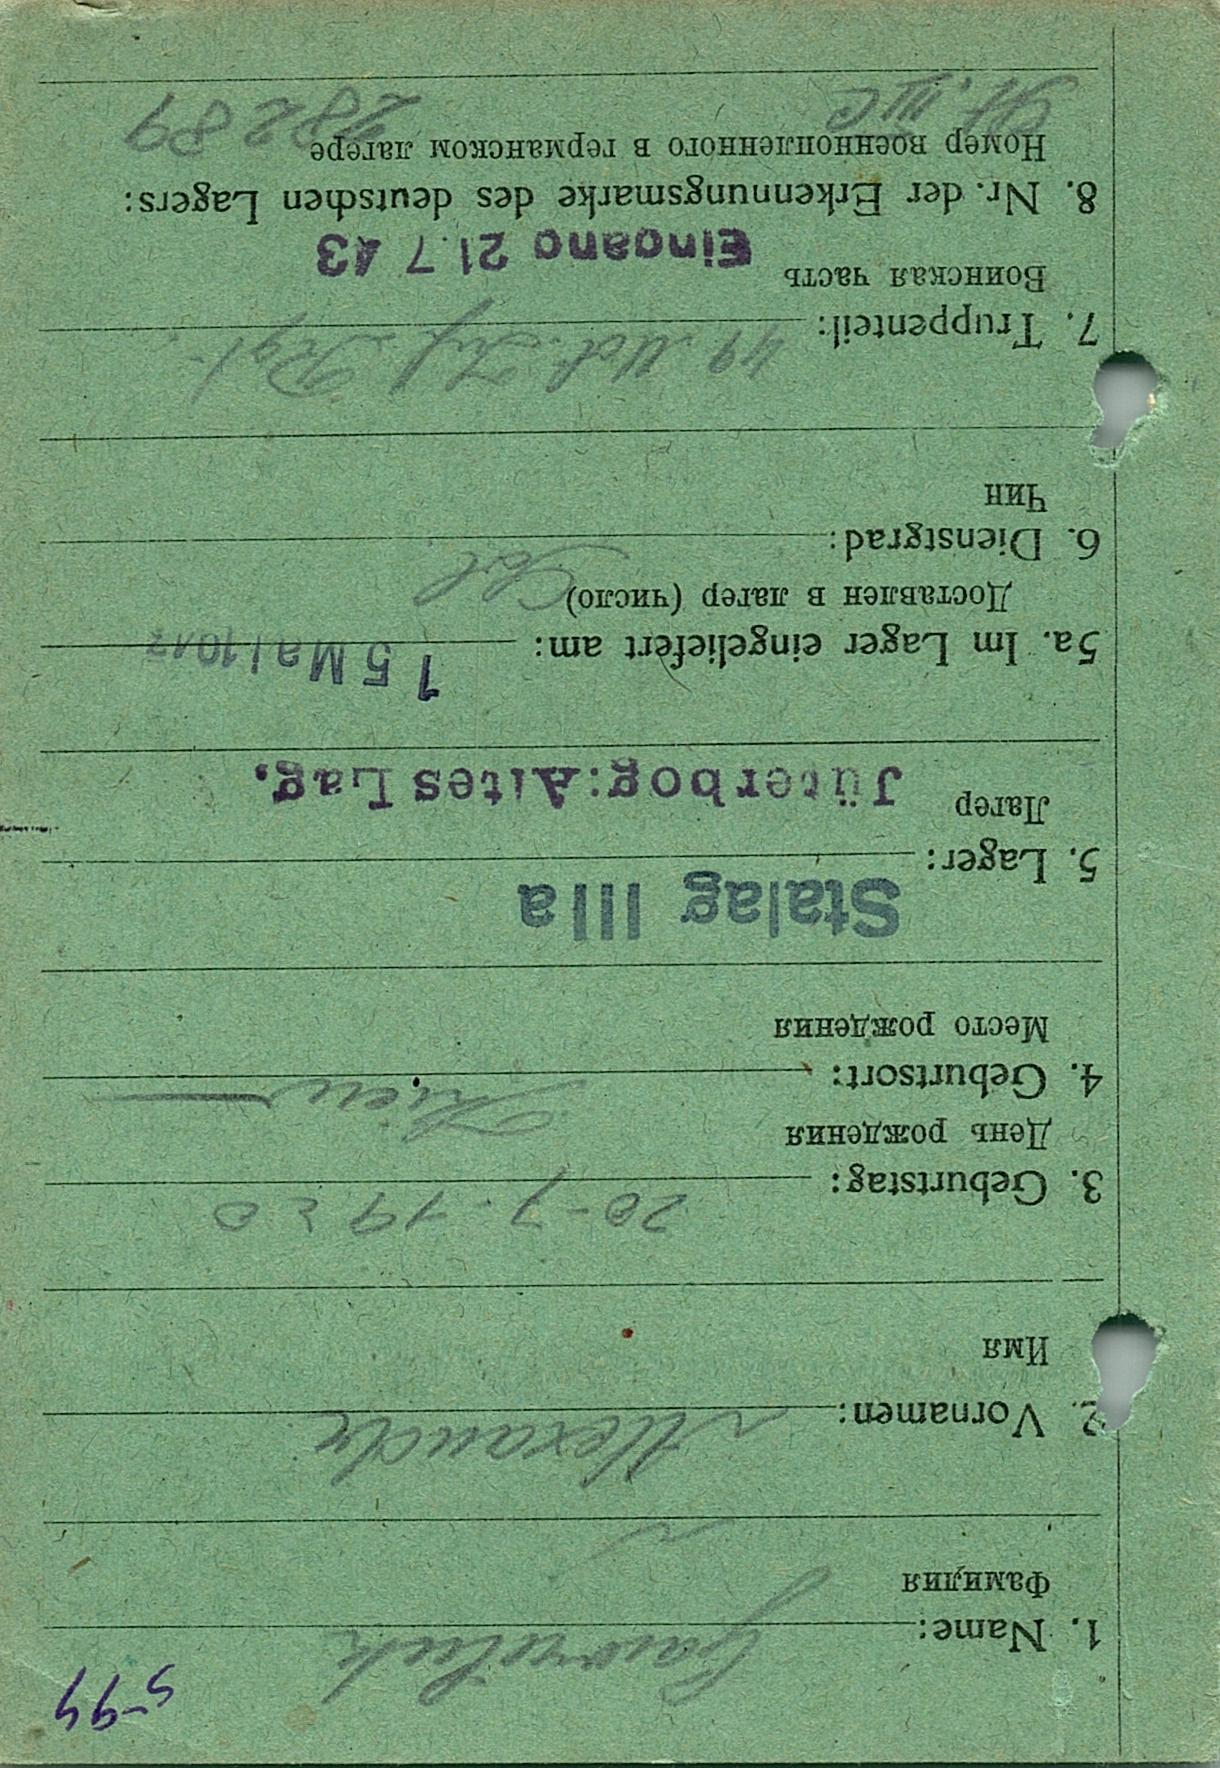 5-99
1. Name: Gawriluk
Фамилия
2. Vornamen: Alexandr
Имя
3. Geburtstag: 20-7.1920
День рождения
4. Geburtsort: Kiew
Место рождения
Stalag IIIa
5. Lager:
Лагер
Jüterbog:Altes Lag.
5a. Im Lager eingeliefert am: 15 Mai 1943
Доставлен в лагер (число)
6. Dienstgrad: Sol.
Чин
7. Truppenteil: 49. Mot. Inf. Rgt.
Воинская часть
Eingang 21.7 43
8. Nr. der Erkennungsmarke des deutschen Lagers:
Номер военнопленного в германском лагере
St. III C 28289